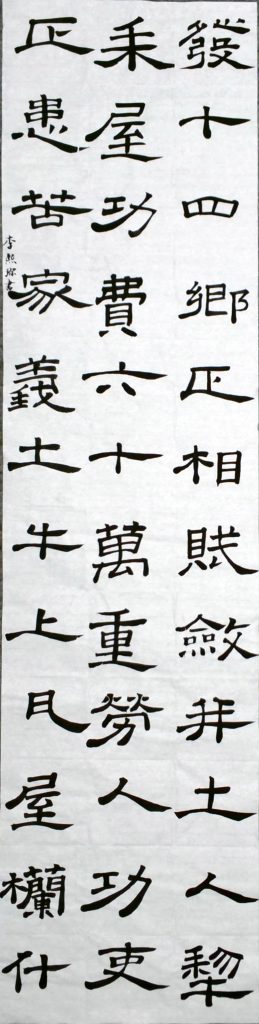 發十四鄉正相賦斂并土人犂
耒屋功費六十萬重勞人功吏
正患苦家義土牛上瓦屋欄什
李書